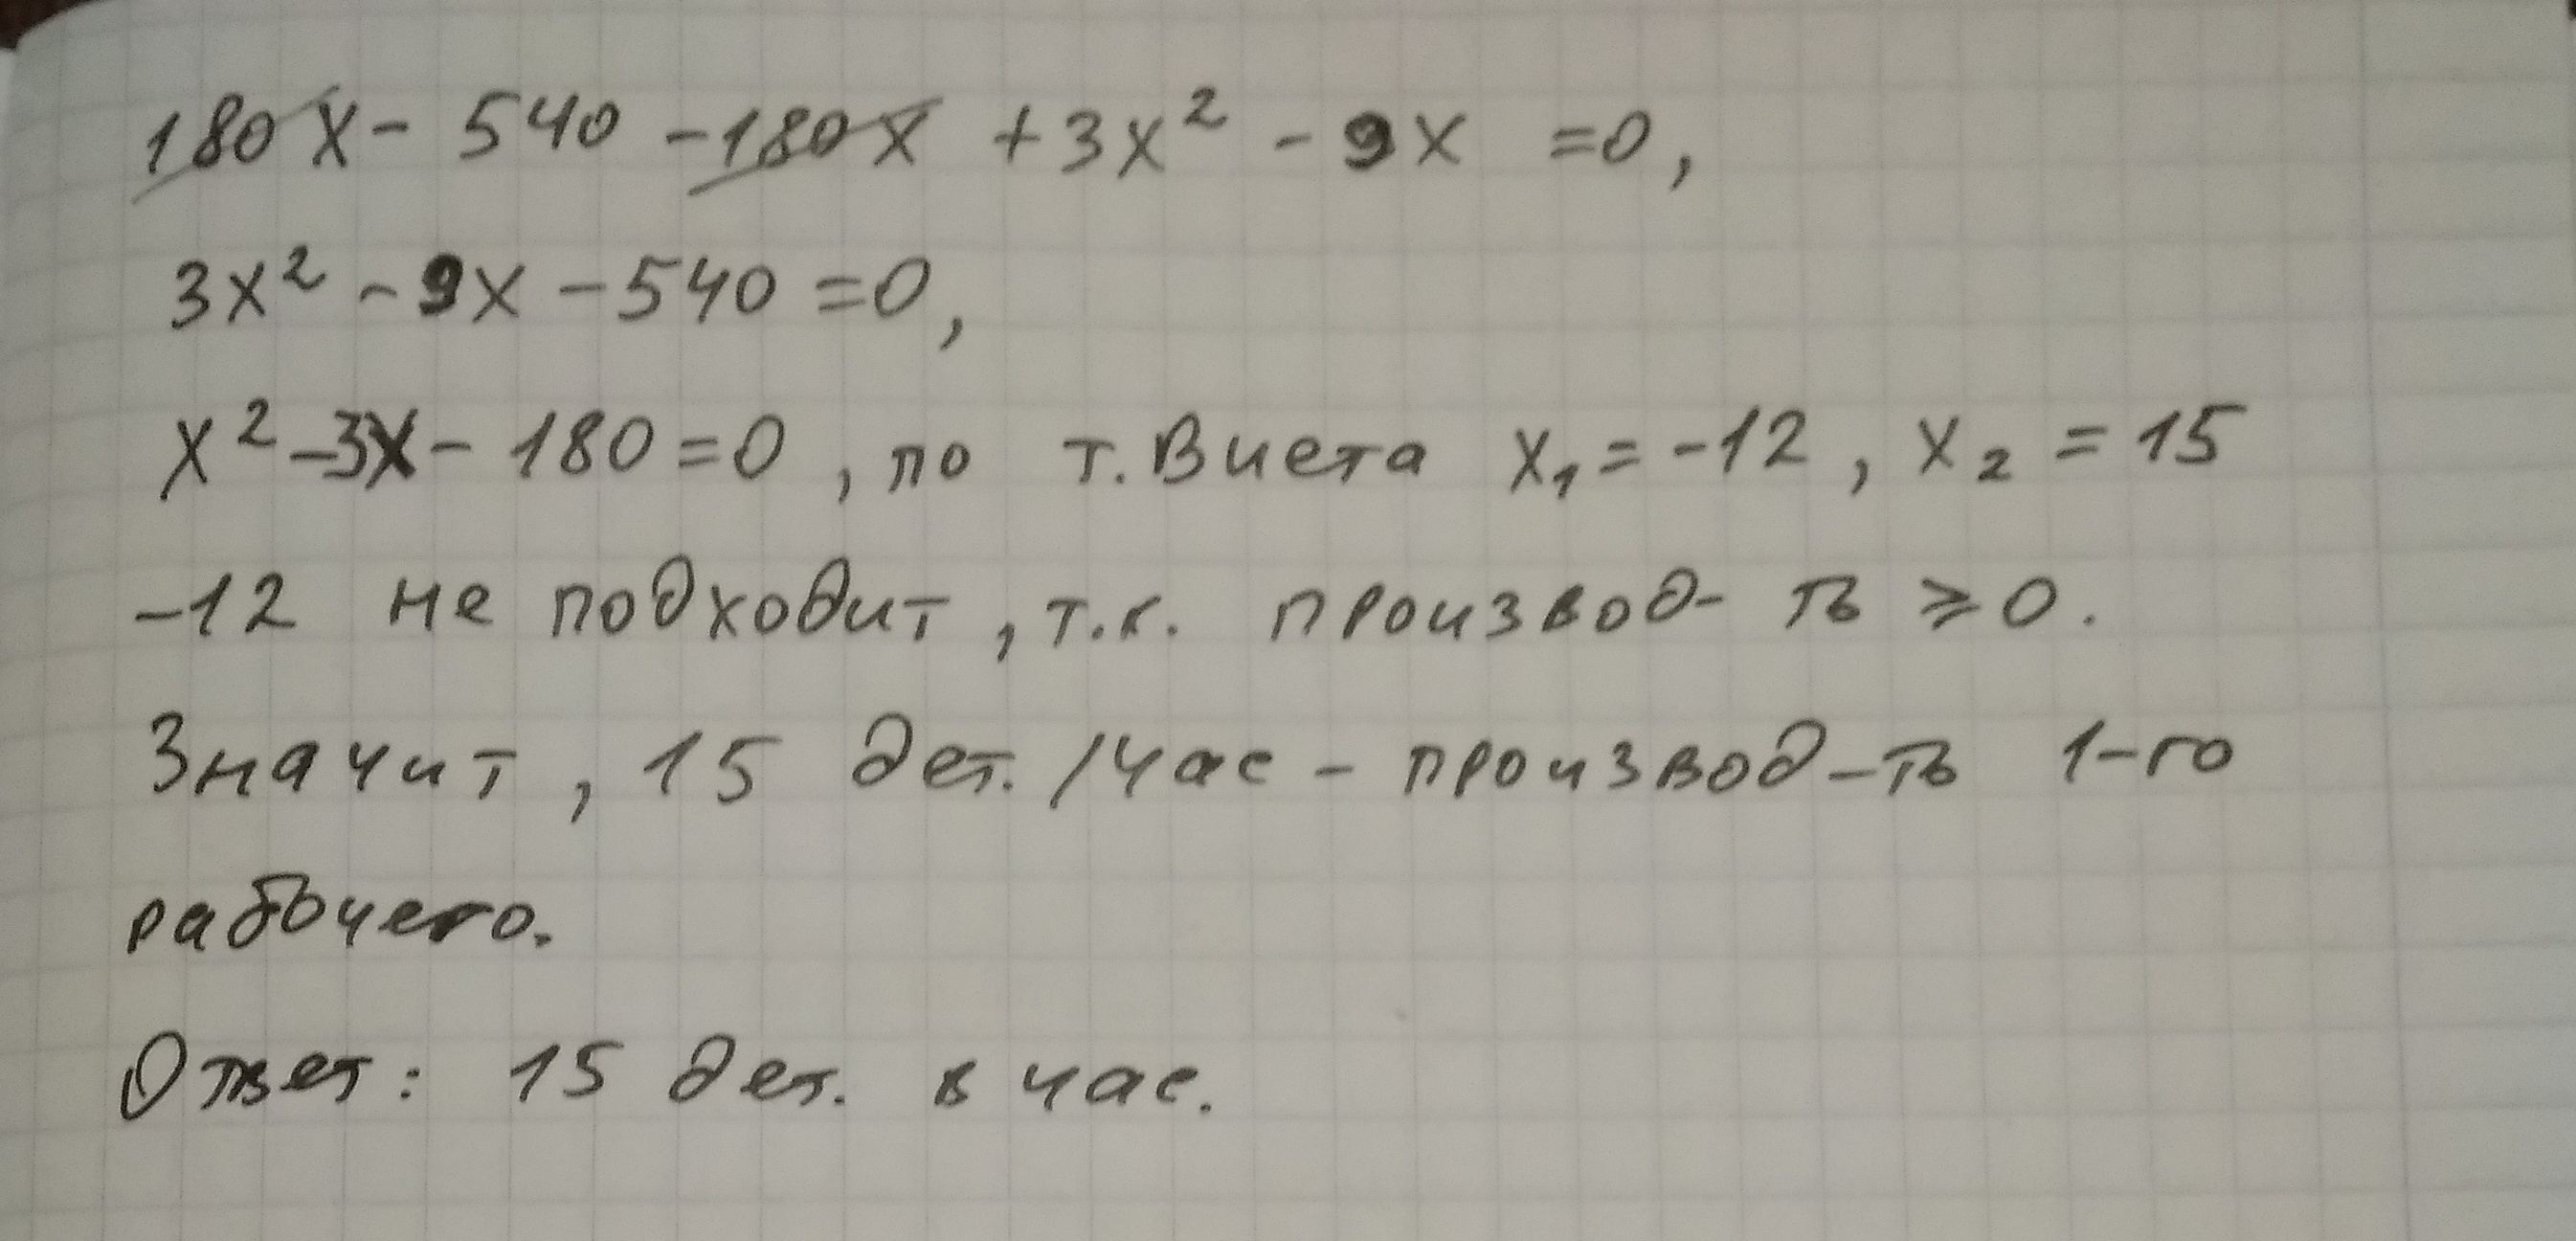 180x - 540 - 180x + 3x² - 9x = 0,
3x² - 9x - 540 = 0,
x² - 3x - 180 = 0, по т. Виета x₁ = -12, x₂ = 15
-12 не подходит, т.к. производ-ть ⩾ 0.
Значит, 15 дет./час - производ-ть 1-го
рабочего.
Ответ: 15 дет. в час.